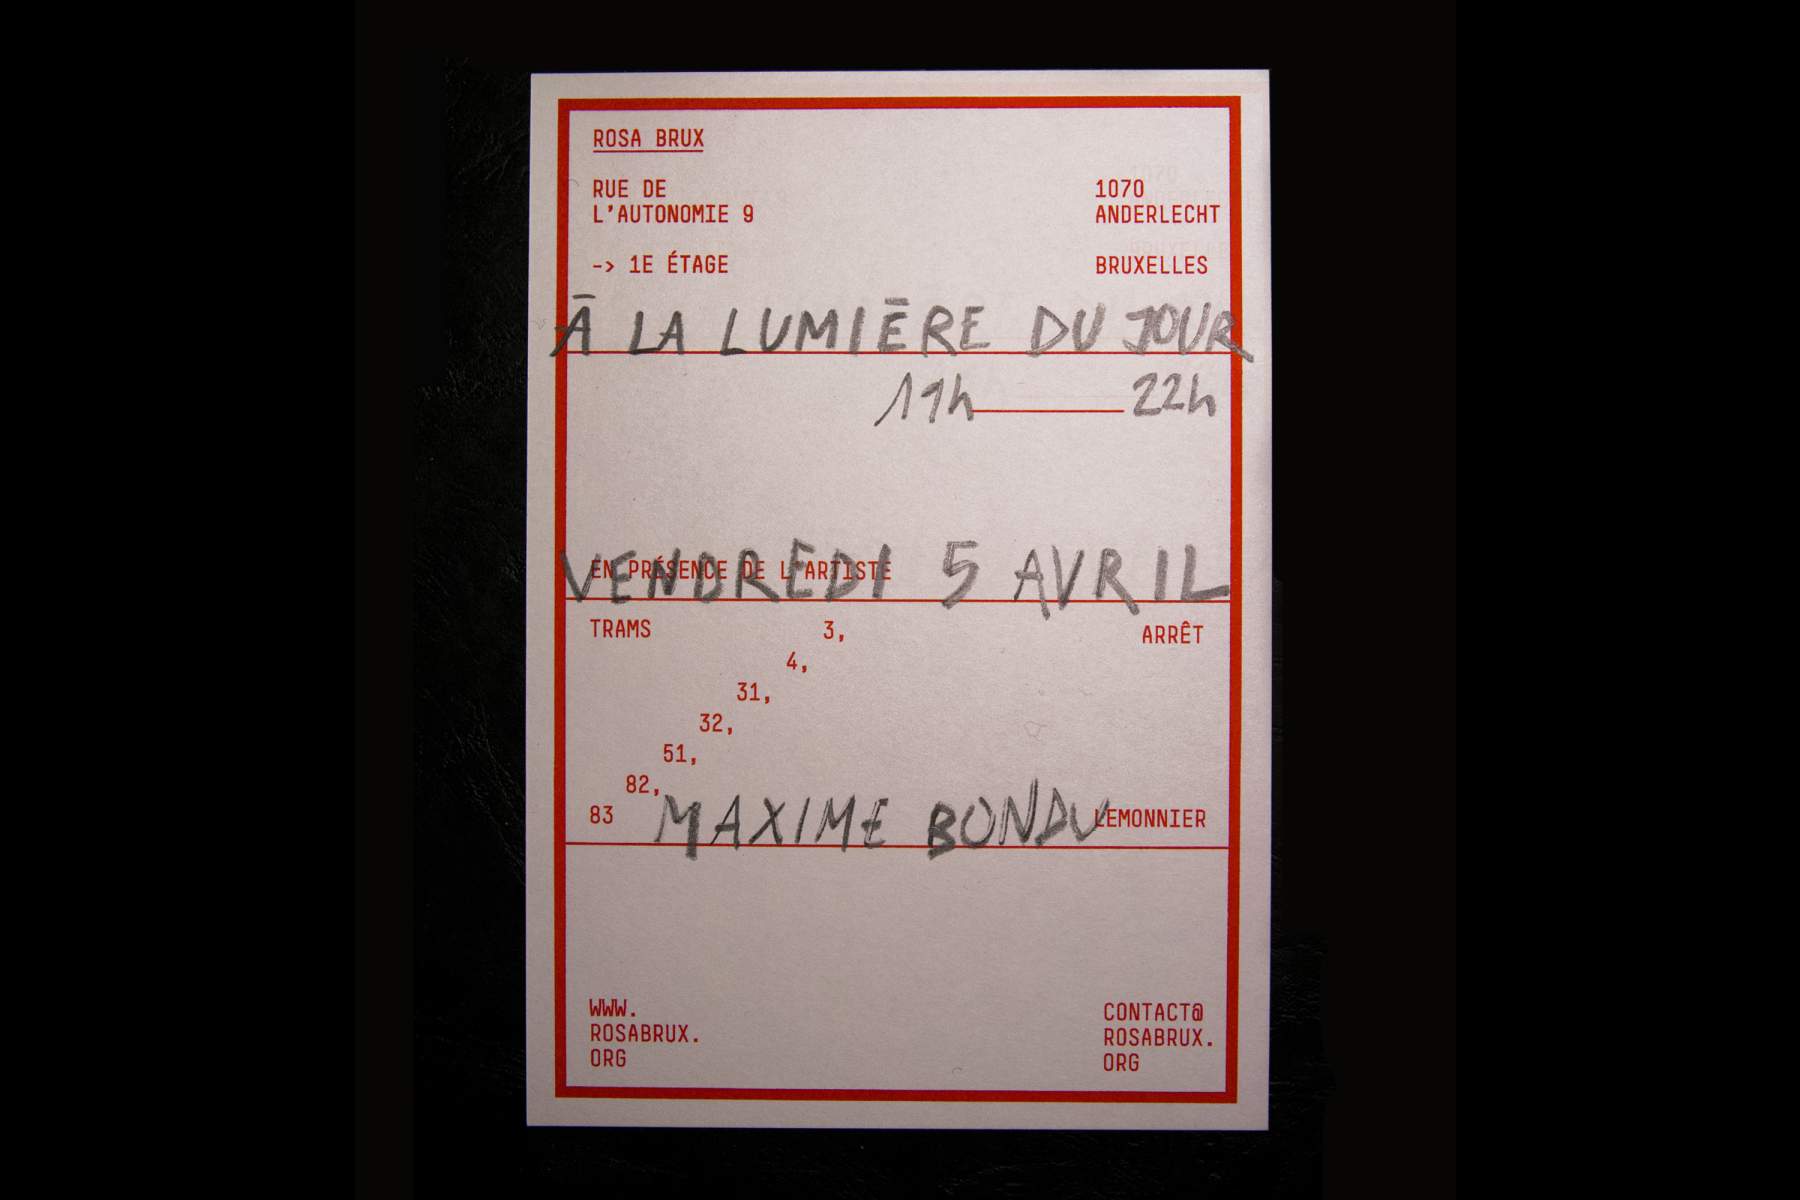 ROSA BRUX
RUE DE
L'AUTONOMIE 9
1070
ANDERLECHT
-> 1E ÉTAGE
BRUXELLES
À LA LUMIÈRE DU JOUR
19h 22h
EN PRÉSENCE DE L'ARTISTE
VENDREDI 5 AVRIL
TRAMS
3,
4,
31,
32,
51,
82,
83
ARRÊT
LEMONNIER
MAXIME BONDU
WWW.
ROSABRUX.
ORG
CONTACT@
ROSABRUX.
ORG